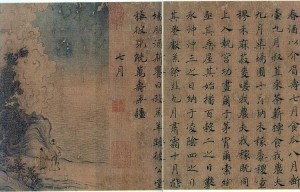 春酒以介眉壽七月食瓜八月斷
壺九月叔苴采荼薪樗食我農夫
九月築場圃十月納禾稼黍稷重
穋禾麻菽麥嗟我農夫我稼既同
上入執宮功晝爾于茅宵爾索綯
亟其乘屋其始播百穀二之日鑿
冰沖沖三之日納于凌陰四之日
其蚤獻羔祭韭九月肅霜十月滌
場朋酒斯饗曰殺羔羊躋彼公堂
稱彼兕觥萬壽無疆
七月